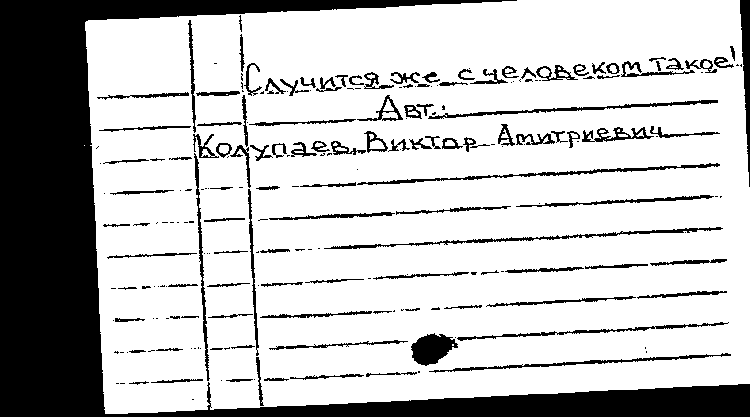 Случится же с человеком такое!
Авт.:
Колупаев, Виктор Дмитриевич